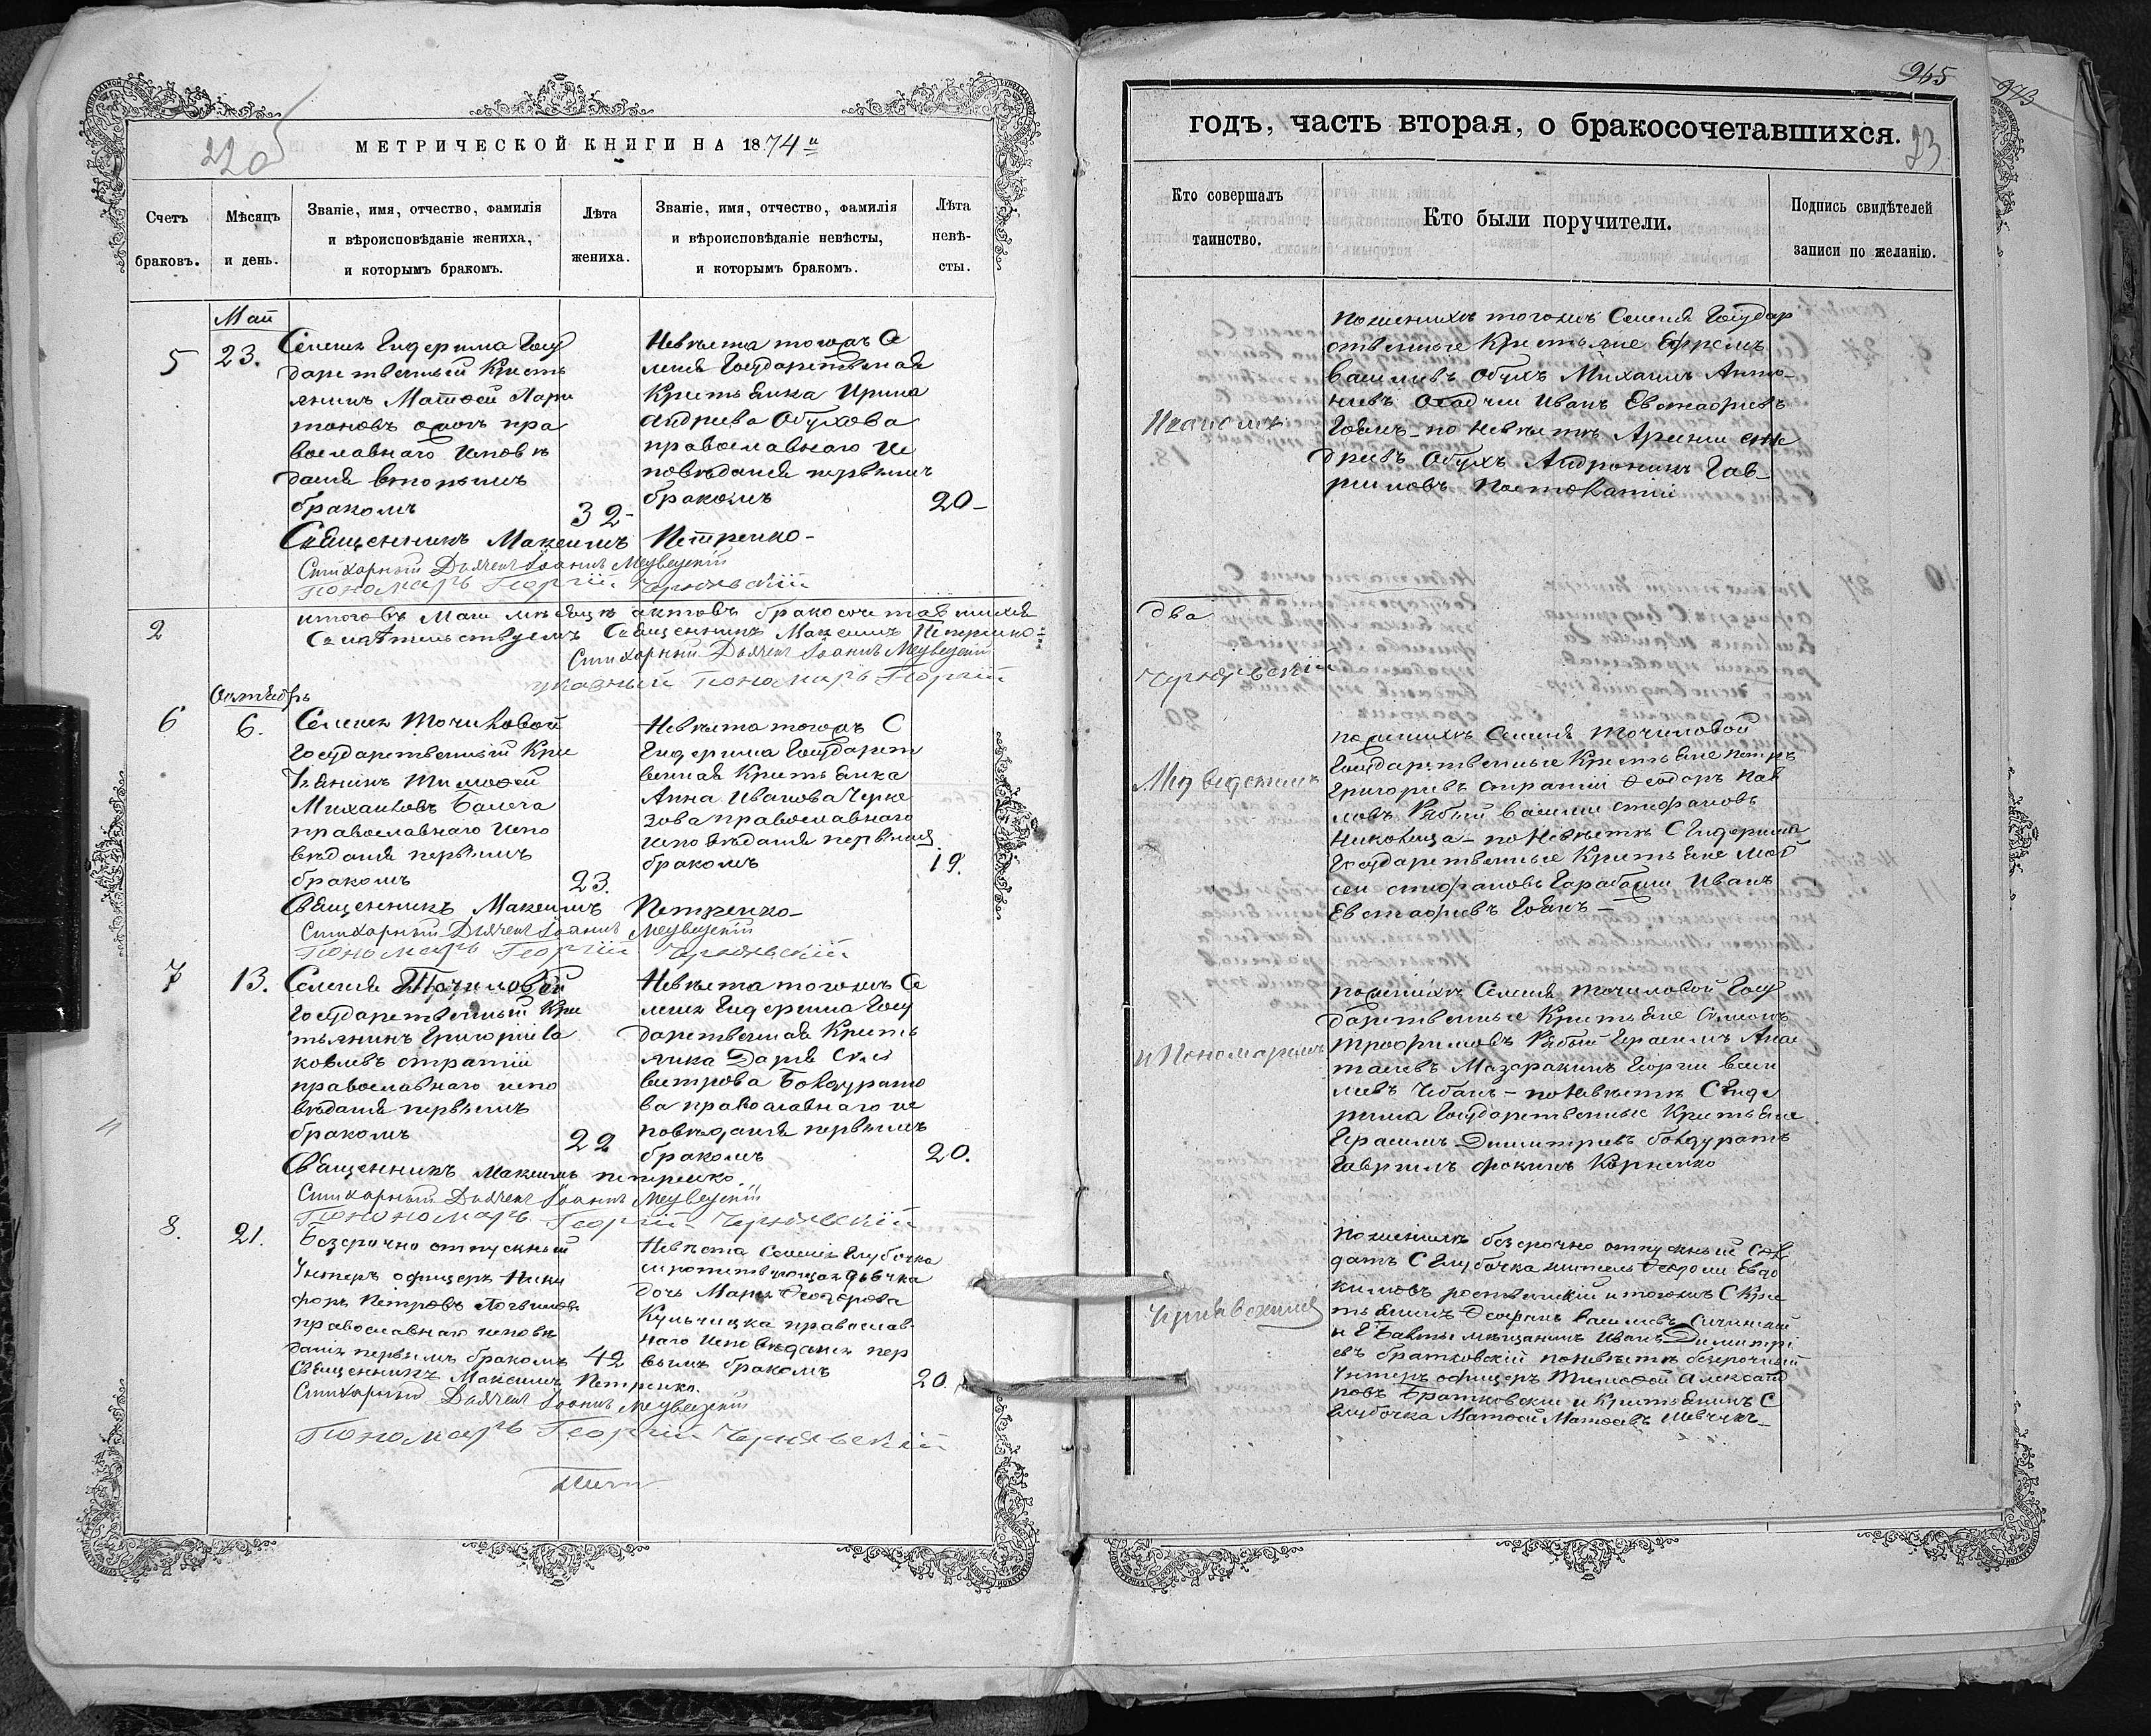 220
МЕТРИЧЕСКОЙ КНИГИ НА 1874 й
Счетъ браковъ.
Мѣсяцъ и день.
Званіе, имя, отчество, фамилія и вѣроисповѣданіе жениха, и которымъ бракомъ.
Лѣта жениха.
Званіе, имя, отчество, фамилія и вѣроисповѣданіе невѣсты, и которымъ бракомъ.
Лѣта невѣ-сты.
Май
5
23.
Селенія Гидерима Госу
дарственный Кресть
янинъ Матѳей Лари
тоновъ
пра
вославнаго исповѣ
данія вторымъ
бракомъ
32-
Невѣста тогожъ Се
ленія Государственная
Крестьянка Ирина
Андреева Обухова
православнаго ис
повѣданія первымъ
бракомъ
20-
Священникъ Максимъ Петренко-
Стихарный Дьячекъ Іоаннъ Медведскій
Пономарь Георгій Чернявскій
2
итого въ Маи мѣсяцѣ актовъ бракосочетавшихся
Свидѣтельствуемъ Священникъ Максимъ Петренко
Стихарный Дьячекъ Іоаннъ Медведскій
указный Пономарь Георгій
Октябрь
6
6.
Селенія Точиловой
Государственный Кре
стьянинъ Тимоѳей
Михаиловъ
православнаго испо
вѣданія первымъ
бракомъ
23.
Невѣста тогожъ С
Гидерима Государст
венная Крестьянка
Анна Иванова Черке
зова православнаго
исповѣданія первымъ
бракомъ
19.
Священникъ Максимъ Петренко-
Стихарный Дьячекъ Іоаннъ Медведскій
Пономарь Георгій Чернявскій
7
13.
Селенія Точиловой
Государственный Кре
стьянинъ Григорій Іа
ковлевъ Стратій
православнаго испо
вѣданія первымъ
бракомъ
22
Невѣста тогожъ Се
ленія Гидерима Госу
дарственная Кресть
янка Дарія Сили
вестрова Болдурато
ва православнаго ис
повѣданія первымъ
бракомъ
20.
Священникъ Максимъ Петренко
Стихарный Дьячекъ Іоаннъ Медведскій
Пономарь Георгій Чернявскій
8.
21.
Безсрочно отпускный
Унтеръ офицеръ Ники
форъ Петровъ
православнаго исповѣ
данія первымъ бракомъ
42
Невѣста Селенія Глубочка
дѣвка
дочь Марія Ѳеодорова
Кульчицка православ
наго исповѣданія пер
вымъ бракомъ
20.
Священникъ Максимъ Петренко.
Стихарный Дьячекъ Іоаннъ Медведскій
Пономарь Георгій Чернявскій
965
973
23
годъ, часть вторая, о бракосочетавшихся.
Кто совершалъ таинство.
Кто были поручители.
Подпись свидѣтелей записи по желанію.
по женихѣ тогожъ Селенія Государ
ственные Крестьяне Ефремъ
Васильевъ Обухъ Михаилъ Анто-
ніевъ Иванъ Евстафіевъ
Гоянъ - по невѣстѣ Арсеній Ан
дреевъ Обухъ Андроникъ Гав-
риловъ
два
Чернявскій
Медведскимъ
по женихѣ Селенія Точиловой
Государственные Крестьяне Петръ
Григорьевъ Стратій Ѳеодоръ Пав
ловъ Рябый Василій Стефановъ
Николица - по невѣстѣ С Гидерима
Государственные Крестьяне Мой
сей Стефановъ Иванъ
Евстафіевъ Гоянъ -
и Пономаремъ
по женихѣ Селенія Точиловой Госу
дарственные Крестьяне Симеонъ
Трофимовъ Рябый Герасимъ Анас
тасіевъ Мазаракинъ Георгій Васи
ліевъ Чебанъ - по невѣстѣ С Гиде
рима Государственные Крестьяне
Герасимъ Димитріевъ Болдуратъ
Гавріилъ Фокинъ Корніенко
Чернявскимъ
по женихѣ безсрочно отпускный сол
датъ С Глубочка житель Ѳеодосій Евдо
кимовъ и тогожъ С Кре
стьянинъ Ѳеофанъ Васильевъ
мѣщанинъ Иванъ Димитрі
евъ Братковскій по невѣстѣ безсрочный
Унтеръ офицеръ Тимоѳей Александ
ровъ Братковскій и Крестьянинъ С
Глубочка Матѳей Матѳеевъ Шевчукъ-